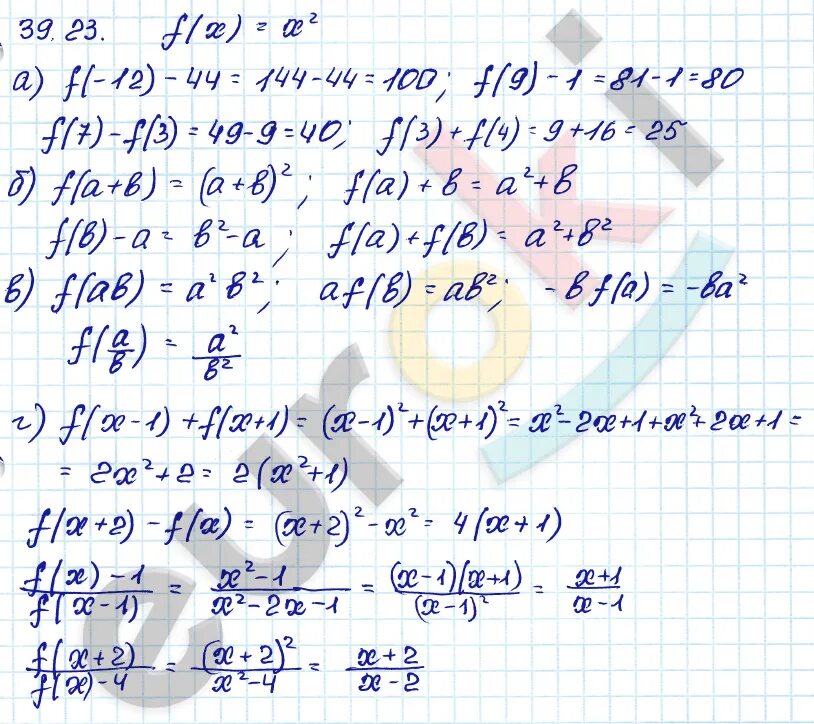 39.23. f(x) = x²
а) f(-12) - 44 = 144 - 44 = 100; f(9) - 1 = 81 - 1 = 80
f(7) - f(3) = 49 - 9 = 40; f(3) + f(4) = 9 + 16 = 25
б) f(a+b) = (a+b)²; f(a) + b = a² + b
f(b) - a = b² - a; f(a) + f(b) = a² + b²
в) f(ab) = a² b²; af(b) = ab²; -b f(a) = -ba²
f(a/b) = a²/b²
г) f(x-1) + f(x+1) = (x-1)² + (x+1)² = x² - 2x + 1 + x² + 2x + 1 =
= 2x² + 2 = 2(x² + 1)
f(x+2) - f(x) = (x+2)² - x² = 4(x+1)
(f(x) - 1)/(f(x-1)) = (x² - 1)/(x² - 2x - 1) = ((x-1)(x+1))/((x-1)²) = (x+1)/(x-1)
(f(x+2))/(f(x) - 4) = ((x+2)²)/(x² - 4) = (x+2)/(x-2)
euroki